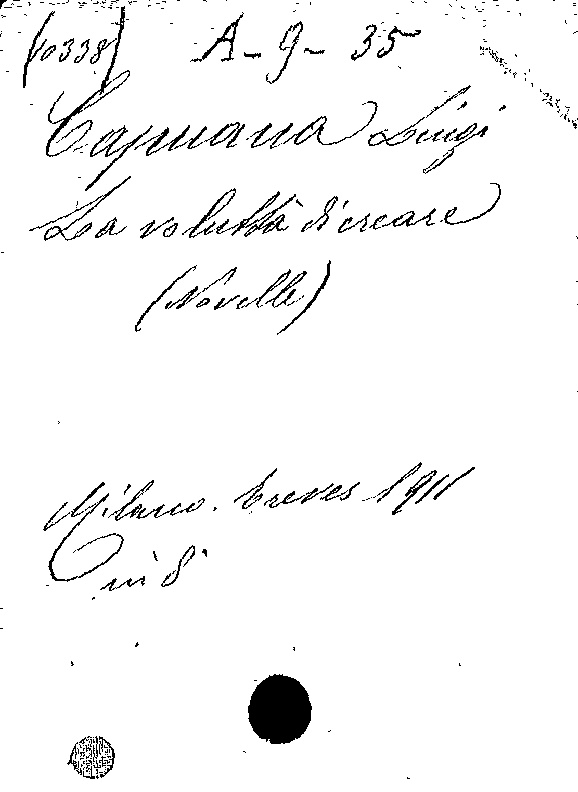 (10338) A-9-35
Capuana Luigi
La voluttà di creare
(Novelle)
Milano. Treves 1911
in 8°